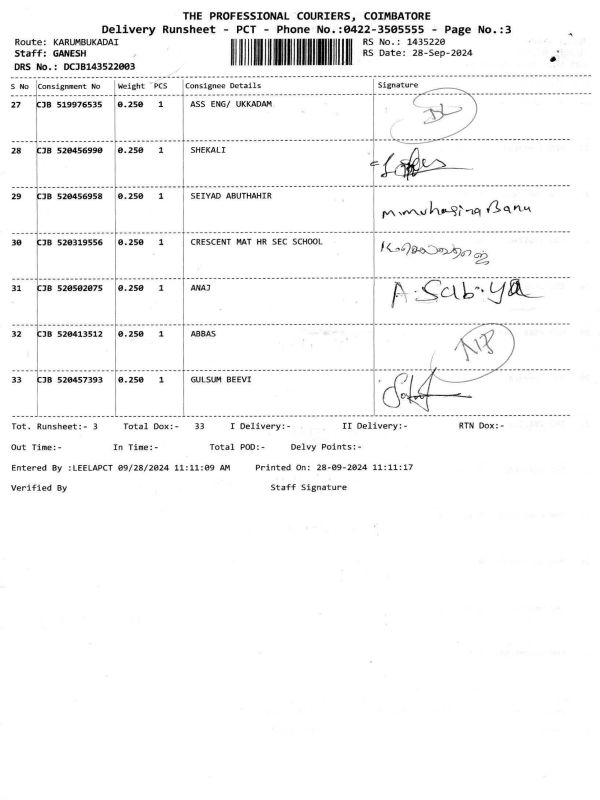 THE PROFESSIONAL COURIERS, COIMBATORE
Delivery Runsheet - PCT - Phone No.:0422-3505555 - Page No.:3
Route: KARUMBUKADAI RS No.: 1435220
Staff: GANESH RS Date: 28-Sep-2024
DRS No.: DCJB143522003
S No Consignment No Weight PCS Consignee Details Signature
27 CJB 519976535 0.250 1 ASS ENG/ UKKADAM
28 CJB 520456990 0.250 1 SHEKALI
29 CJB 520456958 0.250 1 SEIYAD ABUTHAHIR
M.Muhasina Banu
30 CJB 520319556 0.250 1 CRESCENT MAT HR SEC SCHOOL
31 CJB 520502075 0.250 1 ANAJ A.Sab.Ya
32 CJB 520413512 0.250 1 ABBAS
33 CJB 520457393 0.250 1 GULSUM BEEVI
Tot. Runsheet:- 3 Total Dox:- 33 I Delivery:- II Delivery:- RTN Dox:-
Out Time:- In Time:- Total POD:- Delvy Points:-
Entered By :LEELAPCT 09/28/2024 11:11:09 AM Printed On: 28-09-2024 11:11:17
Verified By Staff Signature